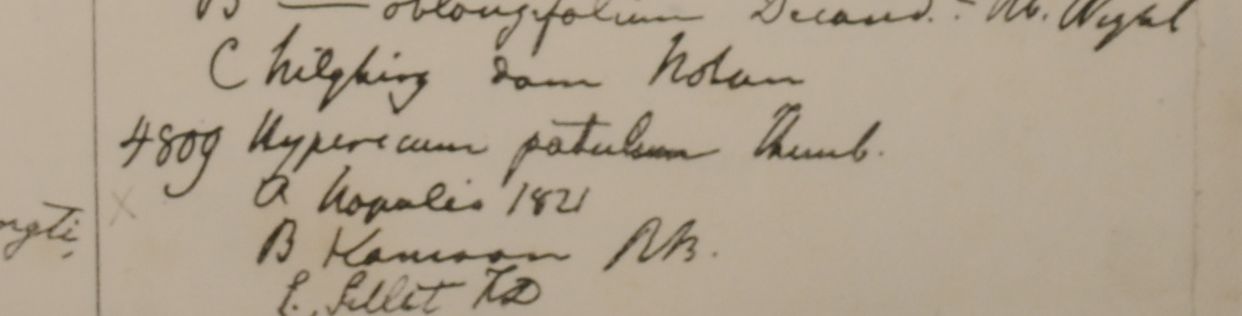 B — oblongifolium Decand. - W. Wight
C hilghing dom Notan
4809 Hypericum patulum Thunb.
a Napalia 1821
B Kamaon RB.
ngti
E. Sillet FD